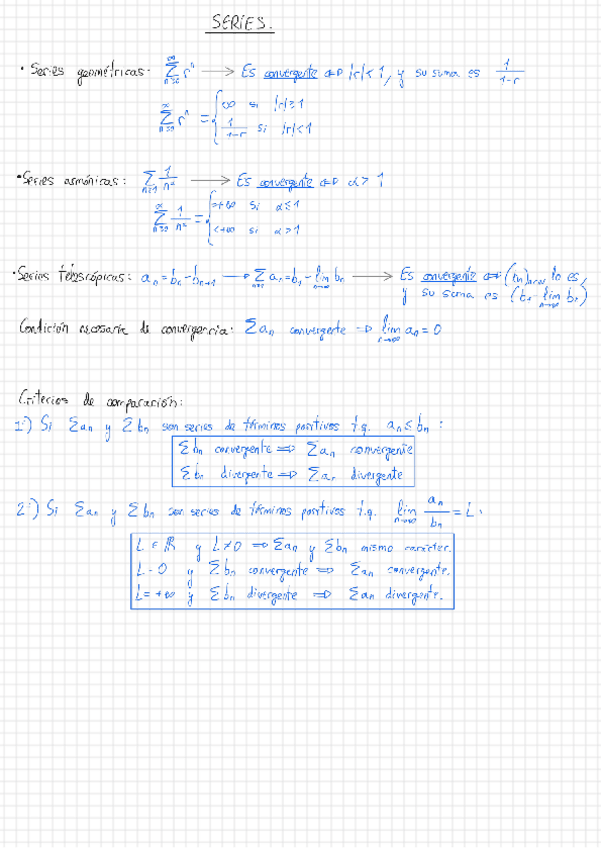 SERIES.
• Series geométricas: ∑_{n≥0}^{∞} r^n → Es convergente ⇔ |r|<1, y su suma es 1/(1-r)
∑_{n≥0}^{∞} r^n = { ∞ si |r|≥1
1/(1-r) si |r|<1
• Series armónicas: ∑_{n≥1} 1/n^α → Es convergente ⇔ α>1
∑_{n≥1}^{∞} 1/n^α = { +∞ si α≤1
<+∞ si α>1
• Series telescópicas: a_n = b_n - b_{n+1} → ∑_{n≥1} a_n = b_1 - lim_{n→∞} b_n → Es convergente ⇔ (b_n)_{n∈ℕ} lo es,
y su suma es (b_1 - lim_{n→∞} b_n)
Condición necesaria de convergencia: ∑a_n convergente ⇒ lim_{n→∞} a_n = 0
Criterios de comparación:
1º) Si ∑a_n y ∑b_n son series de términos positivos t.q. a_n ≤ b_n :
∑b_n convergente ⇒ ∑a_n convergente
∑b_n divergente ⇒ ∑a_n divergente
2º) Si ∑a_n y ∑b_n son series de términos positivos t.q. lim_{n→∞} a_n/b_n = L:
L ∈ ℝ y L≠0 ⇒ ∑a_n y ∑b_n mismo carácter.
L=0 y ∑b_n convergente ⇒ ∑a_n convergente.
L=+∞ y ∑b_n divergente ⇒ ∑a_n divergente.